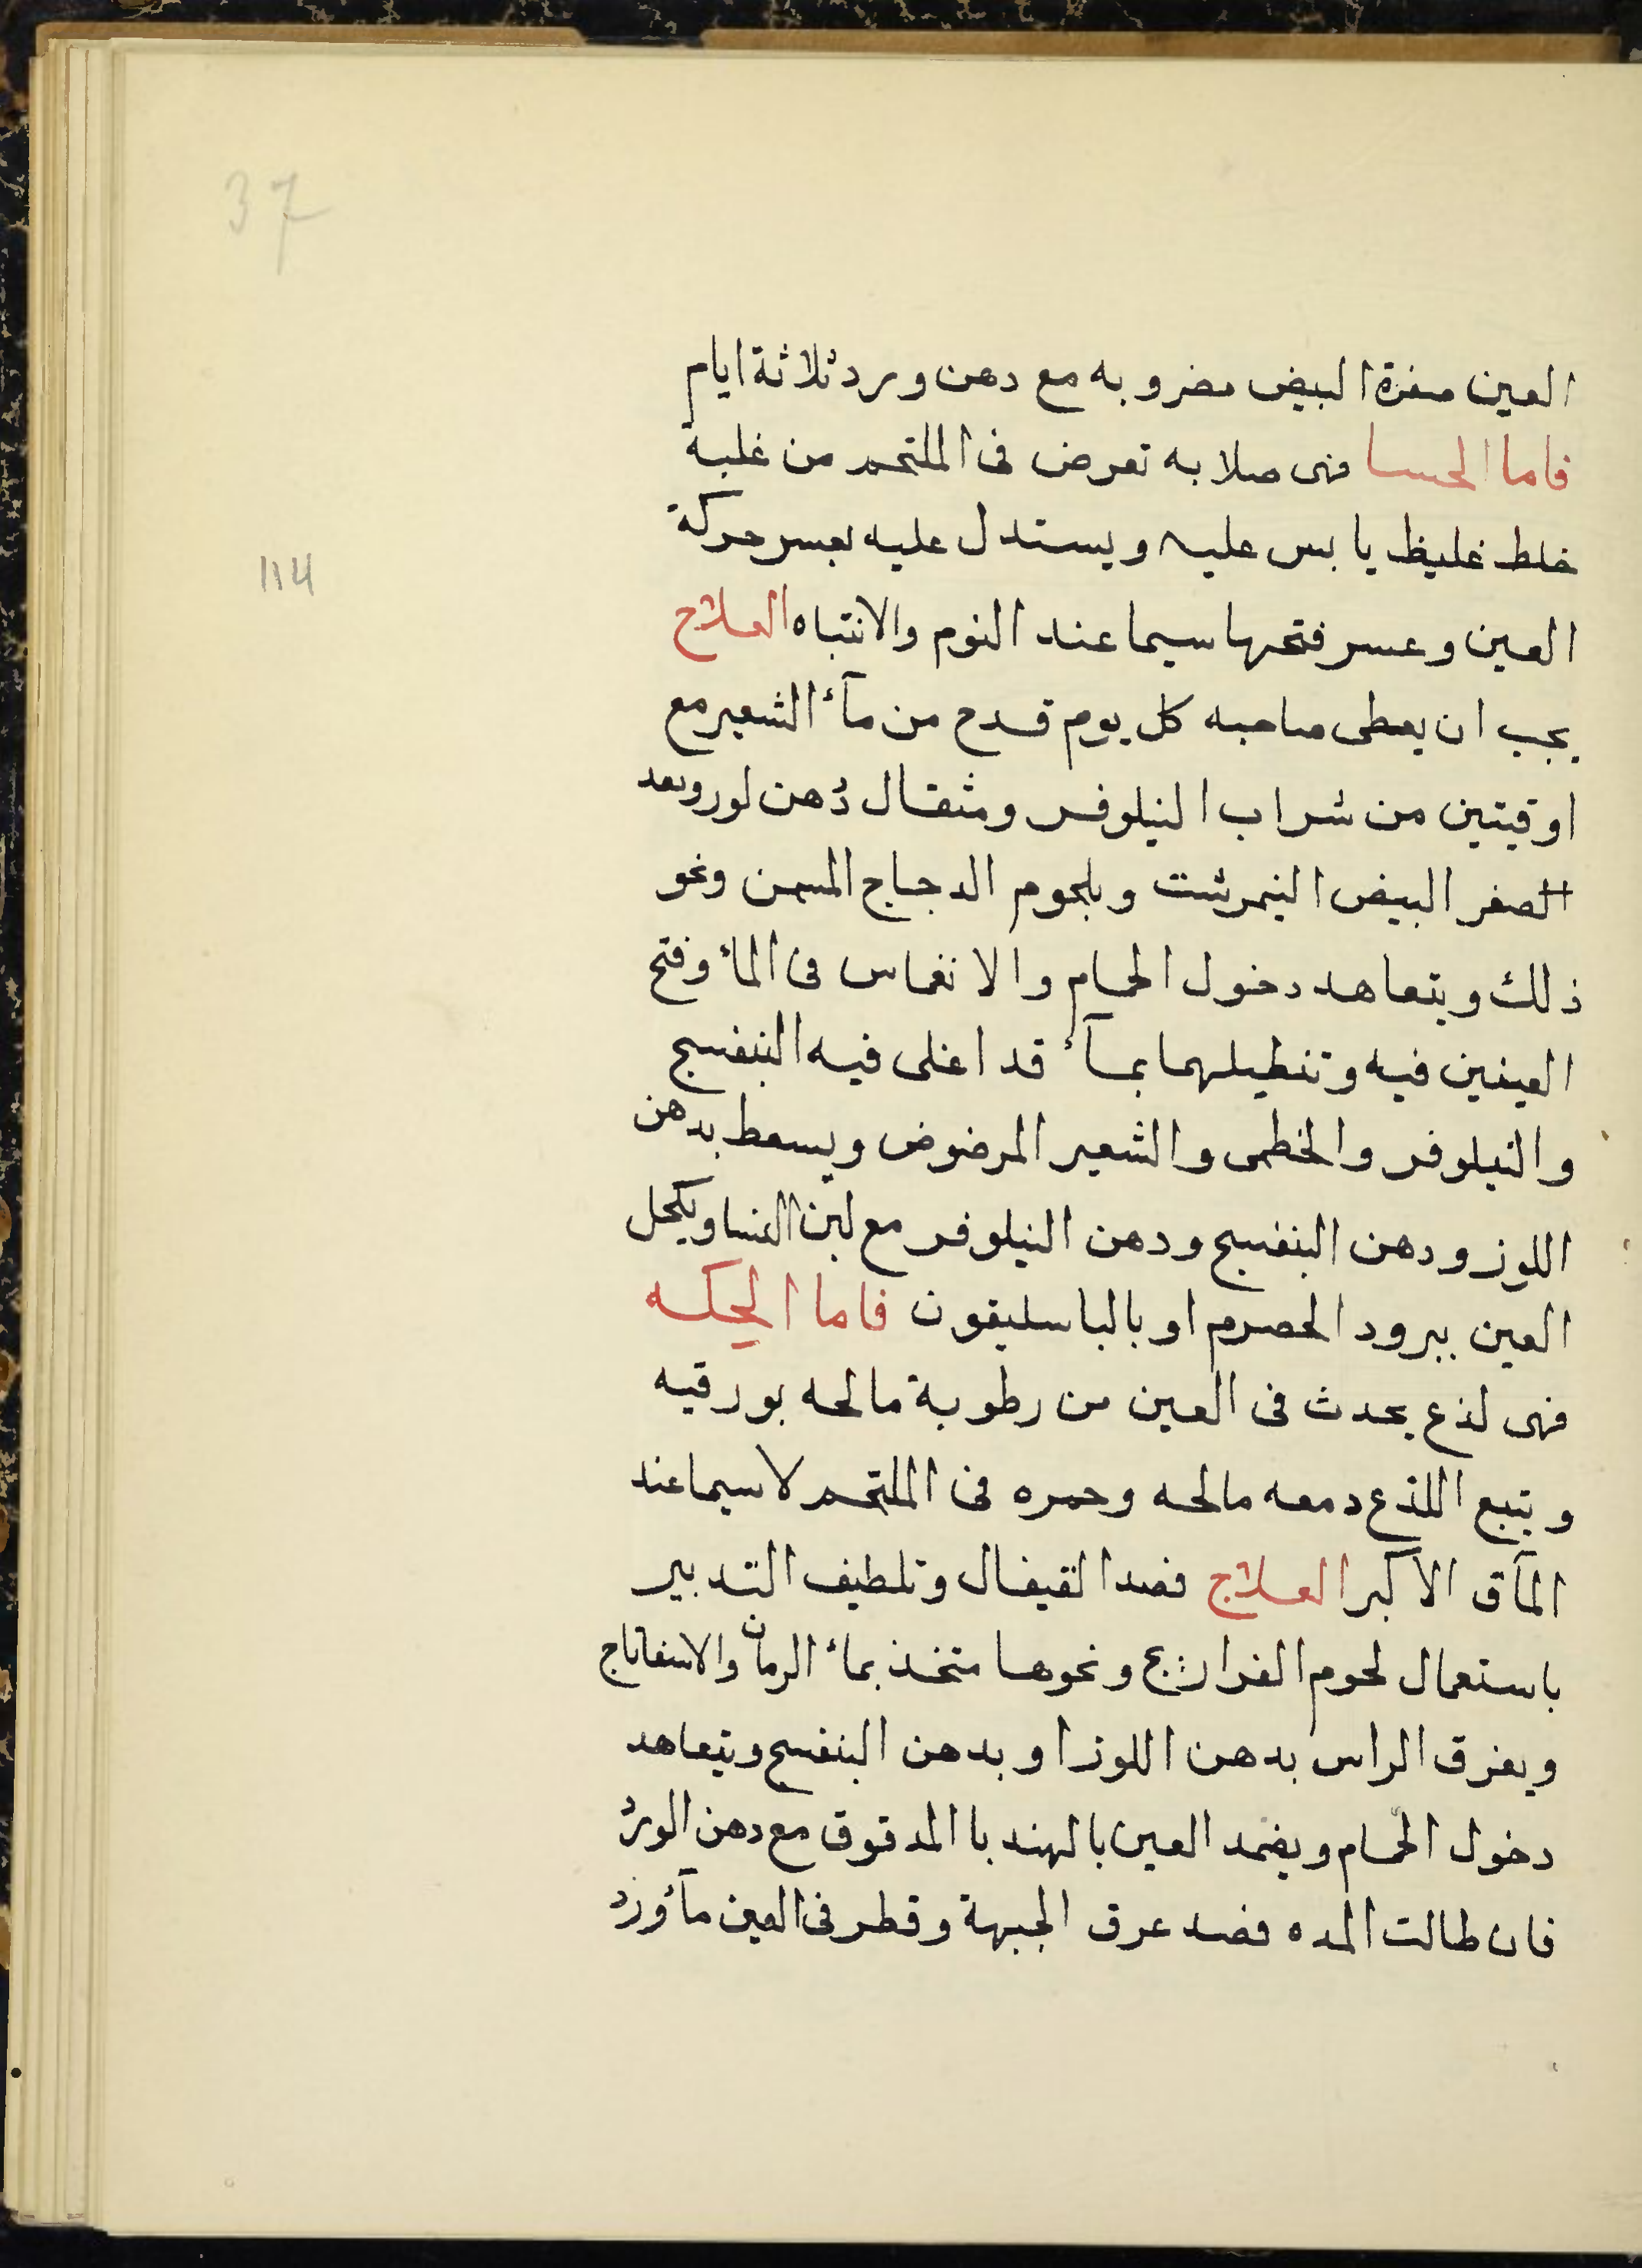 37
العين صفرة البيض مضروبه مع دهن ورد ثلاثة ايام
فاما الحسا فهى صلابه تعرض فى الملتحم من غلبة
خلط غليظ يابس عليه ويستدل عليه بعسر حركة
114
العين وعسر فتحها سيما عند النوم والانتباه العلاج
يجب ان يعطى صاحبه كل يوم قدح من مآء الشعير مع
اوقيتين من شراب النيلوفر ومثقال دُهن لوز وبعد
الصفر البيض النيمرشت وبلحوم الدجاج المسمن ونحو
ذلك ويتعاهد دخول الحمام والانغماس فى المأ وفتح
العينين فيه وتنطيلهما بمآء قد اغلى فيه البنفسج
والنيلوفر والخطمى والشعير المرضوض ويسعط بدهن
اللوز ودهن البنفسج ودهن النيلوفر مع لبن النسا ويكحل
العين ببرود الحصرم او بالباسليقون فاما الحِكه
فهى لذع يحدث فى العين من رطوبة مالحه بورقيه
ويتبع اللذع دمعه مالحه وحمره فى الملتحم لاسيما عند
المآق الاكبر العلاج فصد القيفال وتلطيف التدبير
باستعمال لحوم الفراريج ونحوها متخذ بماء الرمان والاسفاناج
ويغرق الراس بدهن اللوز او بدهن البنفسج ويتعاهد
دخول الحمام ويضمد العين بالهندبا المدقوق مع دهن الورد
فان طالت المده فصد عرق الجبهة وقطر فى العين مآ ورد